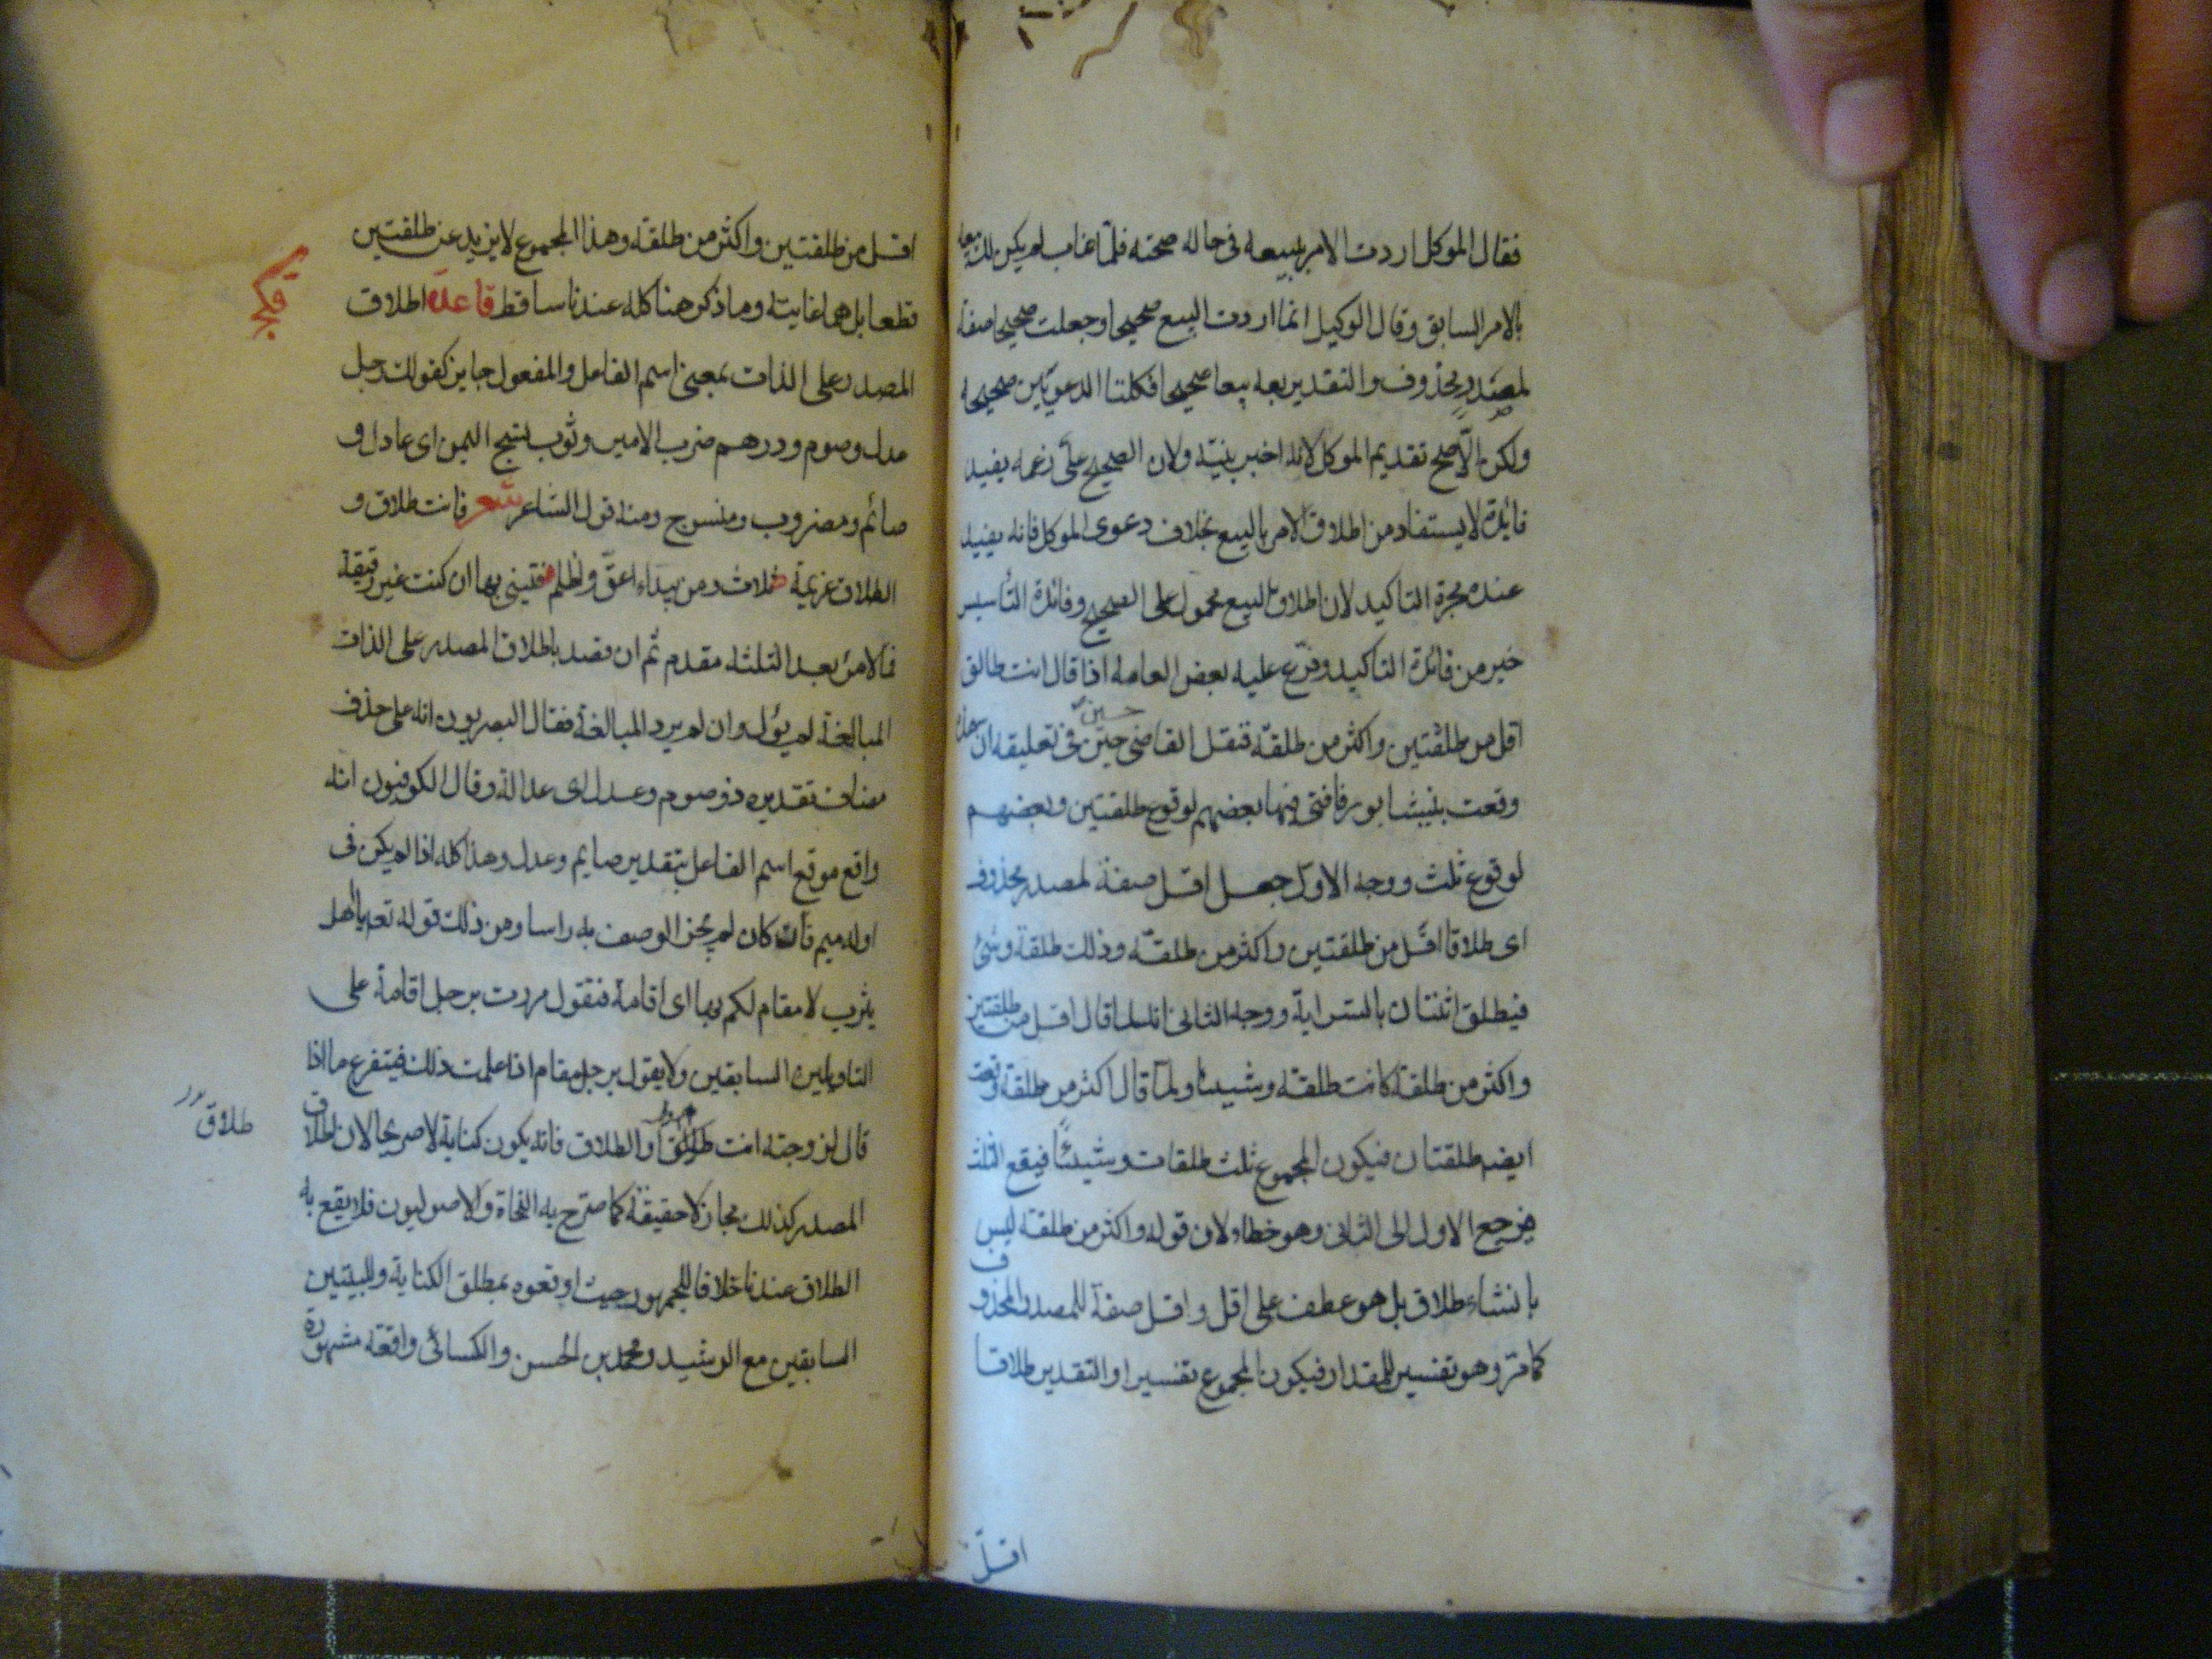 فقال الموكل اردت الامر ببيعه فى حاله صحته فلما غاب لم يكن لك بيعه
بالامر السابق وقال الوكيل انما اردت البيع صحيحا وجعلت صحيحا صفة
لمصدر محذوف والتقدير بعه بيعا صحيحا فكلتا الدعويين صحيحه
ولكن الاصح تقديم الموكل لانه اخبر بنيته ولان الصحيح على زعمه يفيد
فائدة لا يستفاد من اطلاق الامر بالبيع بخلاف دعوى الموكل فانه يفيد
عنده مجرة التاكيد لان اطلاق البيع محمول على الصحيح وفائدة التأسيس
خير من فائدة التاكيد وفرع عليه بعض العامه اذا قال انت طالق
حسين
اقل من طلقتين واكثر من طلقة فنقل القاضى حين فى تعليقه ان هذه
وقعت بنيشابور فافتى فيها بعضهم لوقوع طلقتين وبعضهم
لوقوع ثلث ووجه الاول جعل اقل صفة لمصدر محذوف
اى طلاقا اقل من طلقتين واكثر من طلقة وذلك طلقة وشئ
فيطلق اثنتان بالسراية ووجه الثانى انه لما قال اقل من طلقتين
واكثر من طلقة كانت طلقة وشيئا ولما قال اكثر من طلقة وقعت
ايضه طلقتان فيكون المجموع ثلث طلقات وشيئا فيقع الثلث
فرجع الاول الى الثانى وهو خطاء ولان قوله واكثر من طلقة ليس
بانشاء طلاق بل هو عطف على اقل واقل صفة للمصدر المحذوف
كما مر وهو تفسير للمقدار فيكون المجموع تفسيرا والتقدير طلاقا
اقل
اقل من طلقتين واكثر من طلقة وهذا المجموع لا يزيد عن طلقتين
قطعا بل هما غايته وما ذكر هنا كله عندنا ساقط قاعدة اطلاق
المصدر على الذات بمعنى اسم الفاعل والمفعول جايز كقولك رجل
عدل وصوم ودرهم ضرب الامير وثوب نسج اليمن اى عادل و
صائم ومضروب ومنسوج ومنه قول الشاعر شعر فانت طلاق و
الطلاق عزيمة ثلاث ومن يبداء اعق واظلم فبينى بها ان كنت غير رفيقة
فما لامرئ بعد الثلثه مقدم ثم ان قصد باطلاق المصدر على الذات
المبالغة لم يؤل وان لم يرد المبالغة فقال البصريون انه على حذف
مضاف تقديره ذو صوم وعدل اى عدالة وقال الكوفيون انه
واقع موقع اسم الفاعل بتقدير صايم وعدل وهذا كله اذا لم يكن فى
اوله ميم فان كان لم يجز الوصف به راسا ومن ذلك قوله تعه يا اهل
يثرب لا مقام لكم بها اى اقامة فنقول مررت برجل اقامة على
التاويلين السابقين ولا يقول برجل مقام اذا علمت ذلك فيتفرع ما اذا
قال لزوجته انت طالق او الطلاق فانه يكون كناية لا صريحا لان اطلاق
طلاق
المصدر كذلك مجاز لا حقيقة كما صرح به النحاة والاصوليون فلا يقع به
الطلاق عندنا خلافا للجمهور حيث اوقعوه بمطلق الكناية وللبيتين
السابقين مع الرشيد ومحمد بن الحسن والكسائى واقعة مشهورة